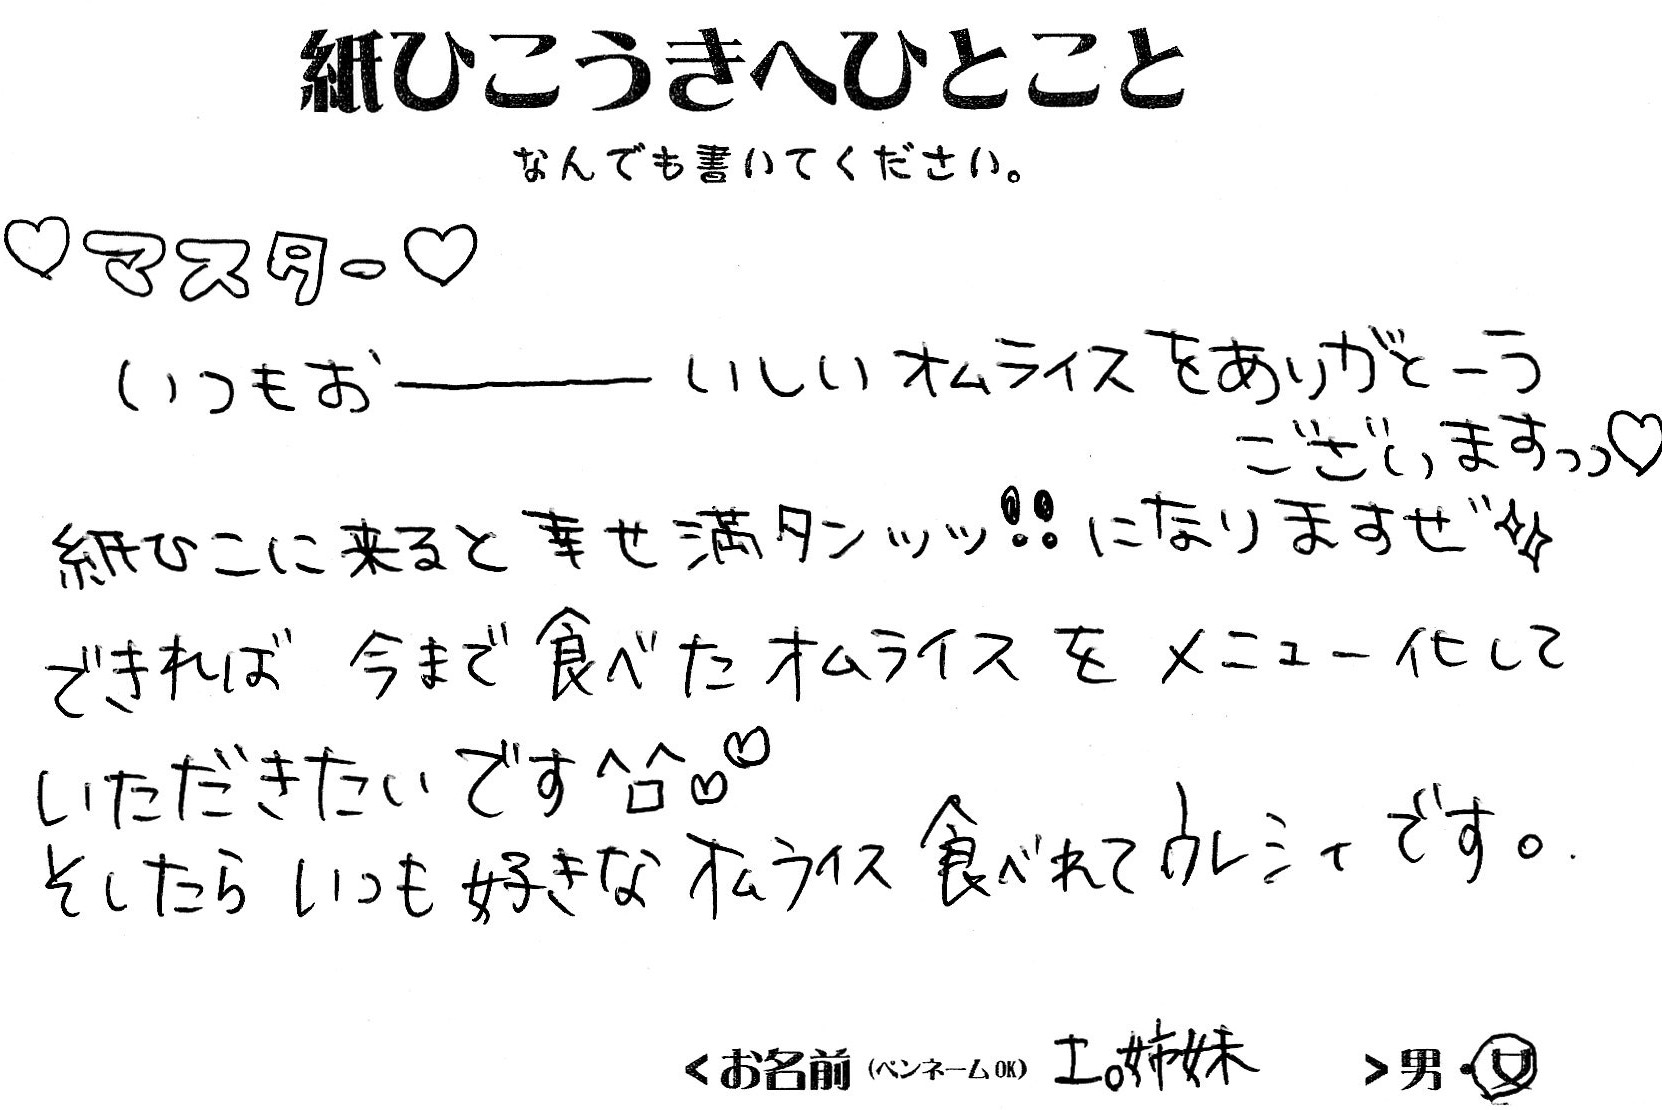 紙ひこうきへひとこと
なんでも書いてください。
♡マスター♡
いつもお――――いしいオムライスをありがとーう
ございますっっ♡
紙ひこに来ると幸せ満タンッッ!!になりますぜ✨
できれば 今まで食べたオムライスをメニュー化して
いただきたいです^ロ^♡♡
そしたらいつも好きなオムライス食べれてウレシイです。
<お名前(ペンネームOK) エ。姉妹 >男・女